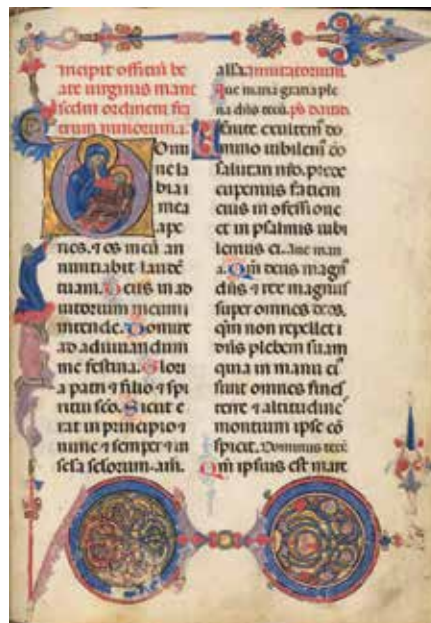 Incipit officiū be
ate uirginis marie
scdm ordinem fra
trum minorum. a.
Domi
ne la
bia
mea
ape
ries. ⁊ os meū an
nuntiabit laudē
tuam. Deus in ad
iutorium meum i
intende. Domine
ad adiuuandum
me festina. Glori
a patri ⁊ filio ⁊ spi
ritui sco. Sicut e
rat in principio ⁊
nunc ⁊ semper ⁊ in
scła scłorum. am.
alla. inuitatorium.
Aue maria gratia ple
na dns tecū. ps dauid.
Uenite exultem do
mino iubilem do
salutari nro. preoc
cupemus faciem
eius in
et in psalmis iubi
lemus ei. Aue mari
a. Qm deus magn
dns ⁊ rex magnus
super omnes deos.
qm non repellet
dns plebem suam
quia in manu ei
sunt omnes fines
terre ⁊ altitudines
montium ipse cō
spicit. Dominus tecū
Qm ipsius est mare